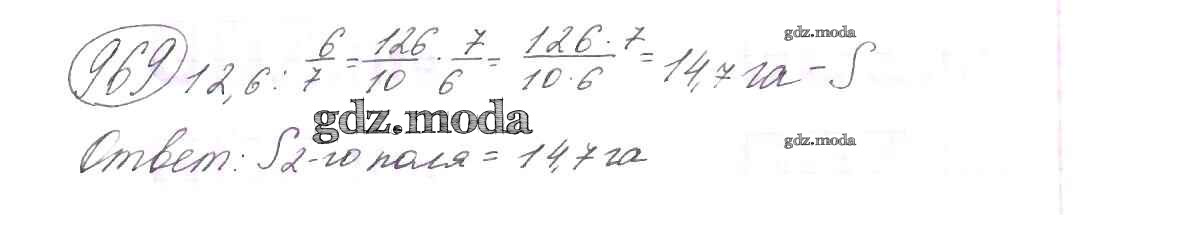 969 12,6 : 6/7 = 126/10 · 7/6 = 126 · 7/10 · 6 = 14,7 га - S
gdz.moda
gdz.moda
Ответ: S 2-го поля = 14,7 га
gdz.moda